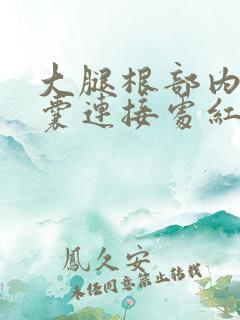 大腿根部内
囊連接處紅
鳳久安
未经同意禁止转载